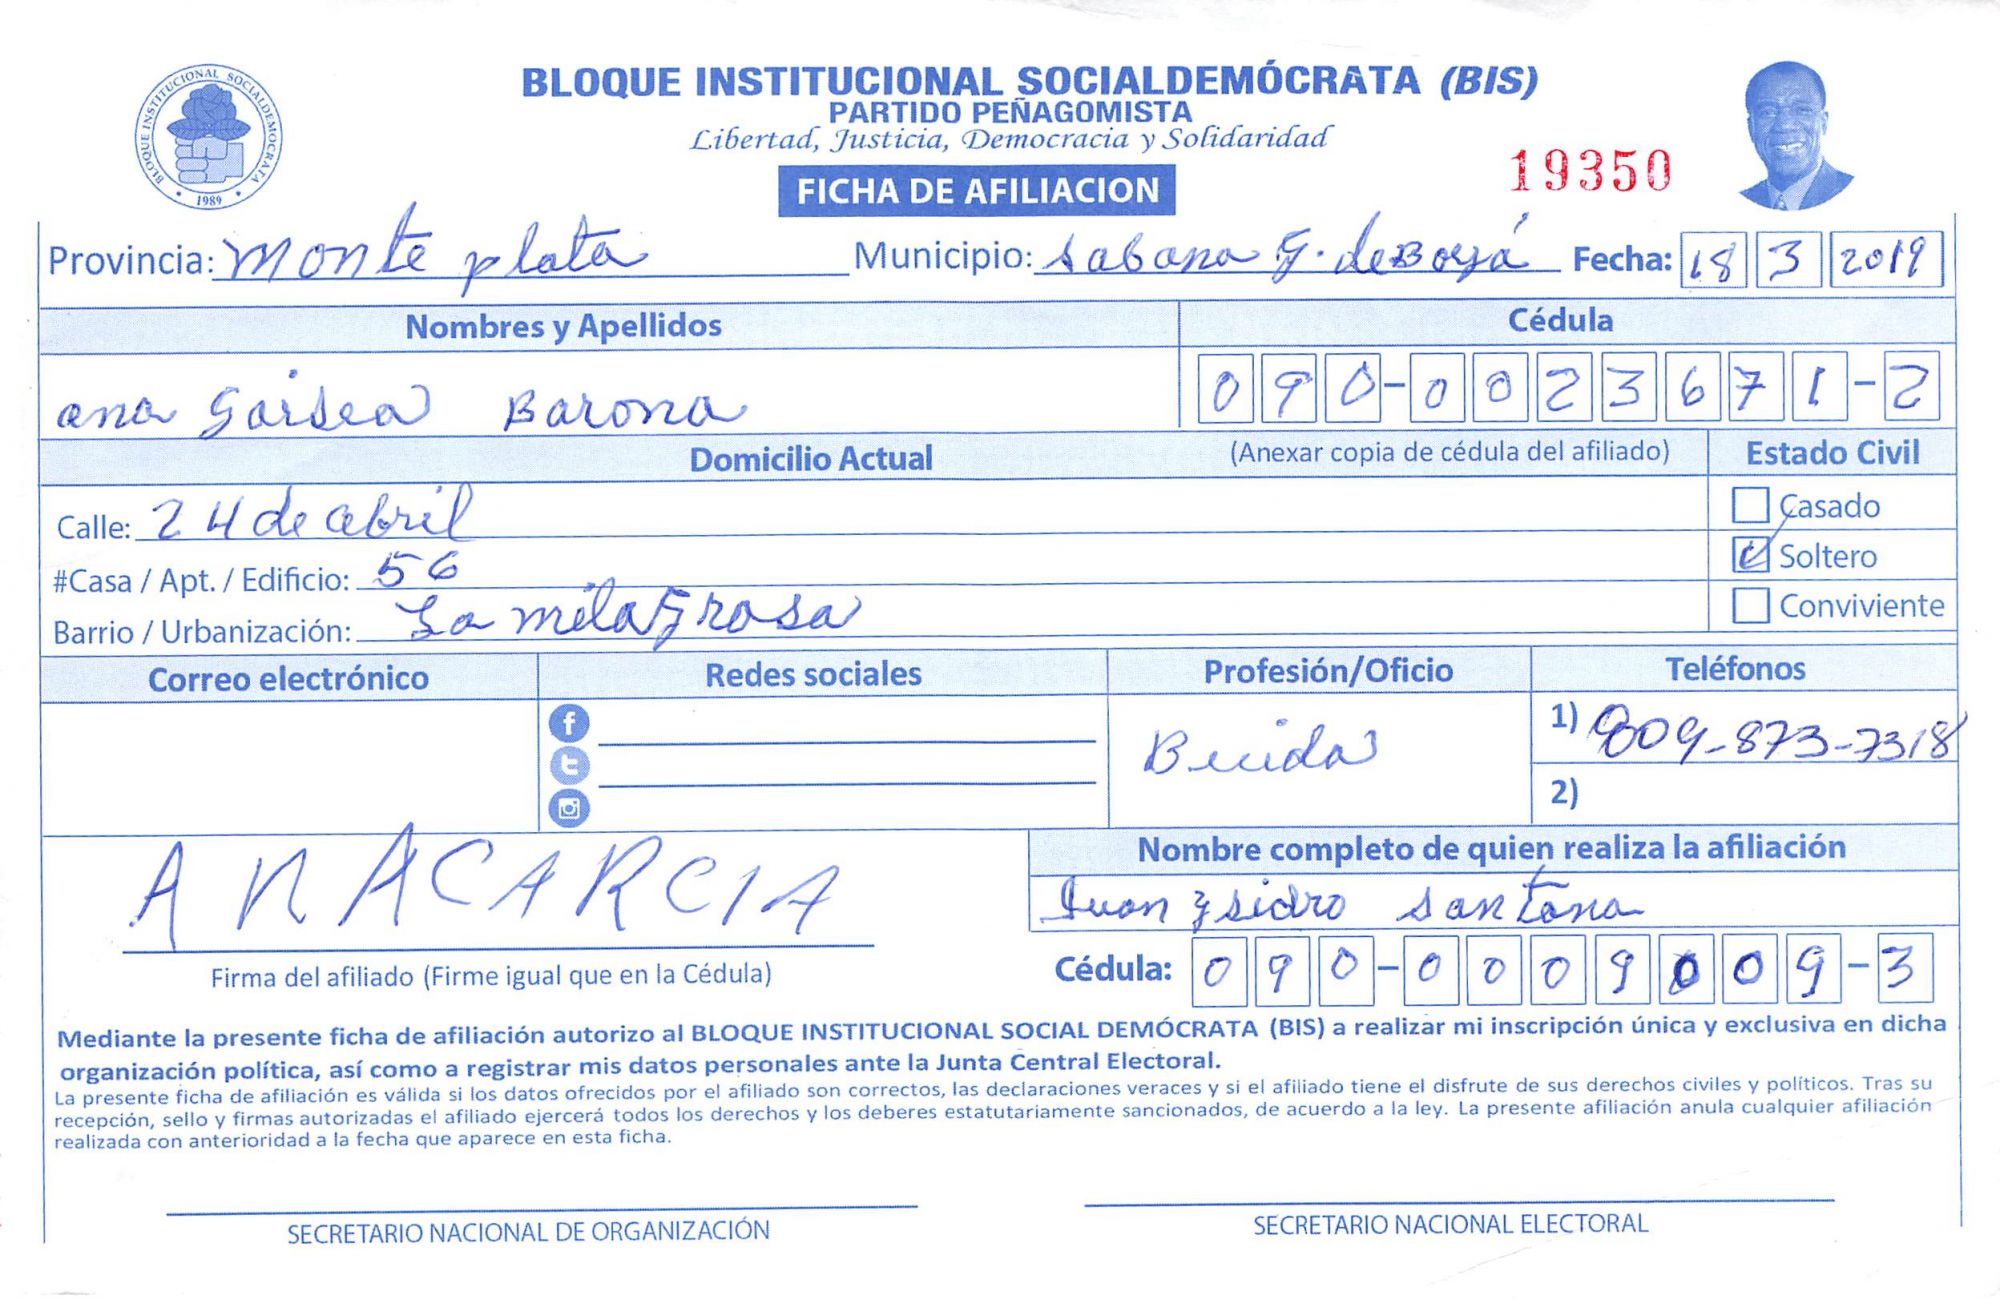 BLOQUE INSTITUCIONAL SOCIALDEMOCRATA
1989
BLOQUE INSTITUCIONAL SOCIALDEMÓCRATA (BIS)
PARTIDO PEÑAGOMISTA
Libertad, Justicia, Democracia y Solidaridad
FICHA DE AFILIACION
19350
Provincia: Monte plata Municipio: Sabana G. de Boyá Fecha: 18 3 2019
Nombres y Apellidos Cédula
ana Barona 090-0023671-2
Domicilio Actual (Anexar copia de cédula del afiliado) Estado Civil
Calle: 24 de abril Casado
#Casa / Apt. / Edificio: 56 Soltero
Barrio / Urbanización: La milagrosa Conviviente
Correo electrónico Redes sociales Profesión/Oficio Teléfonos
1) 809-873-7318
2)
ANA CARCIA
Nombre completo de quien realiza la afiliación
Juan Ysidro Santana
Firma del afiliado (Firme igual que en la Cédula) Cédula: 090-0009009-3
Mediante la presente ficha de afiliación autorizo al BLOQUE INSTITUCIONAL SOCIAL DEMÓCRATA (BIS) a realizar mi inscripción única y exclusiva en dicha
organización política, así como a registrar mis datos personales ante la Junta Central Electoral.
La presente ficha de afiliación es válida si los datos ofrecidos por el afiliado son correctos, las declaraciones veraces y si el afiliado tiene el disfrute de sus derechos civiles y políticos. Tras su
recepción, sello y firmas autorizadas el afiliado ejercerá todos los derechos y los deberes estatutariamente sancionados, de acuerdo a la ley. La presente afiliación anula cualquier afiliación
realizada con anterioridad a la fecha que aparece en esta ficha.
SECRETARIO NACIONAL DE ORGANIZACIÓN SECRETARIO NACIONAL ELECTORAL